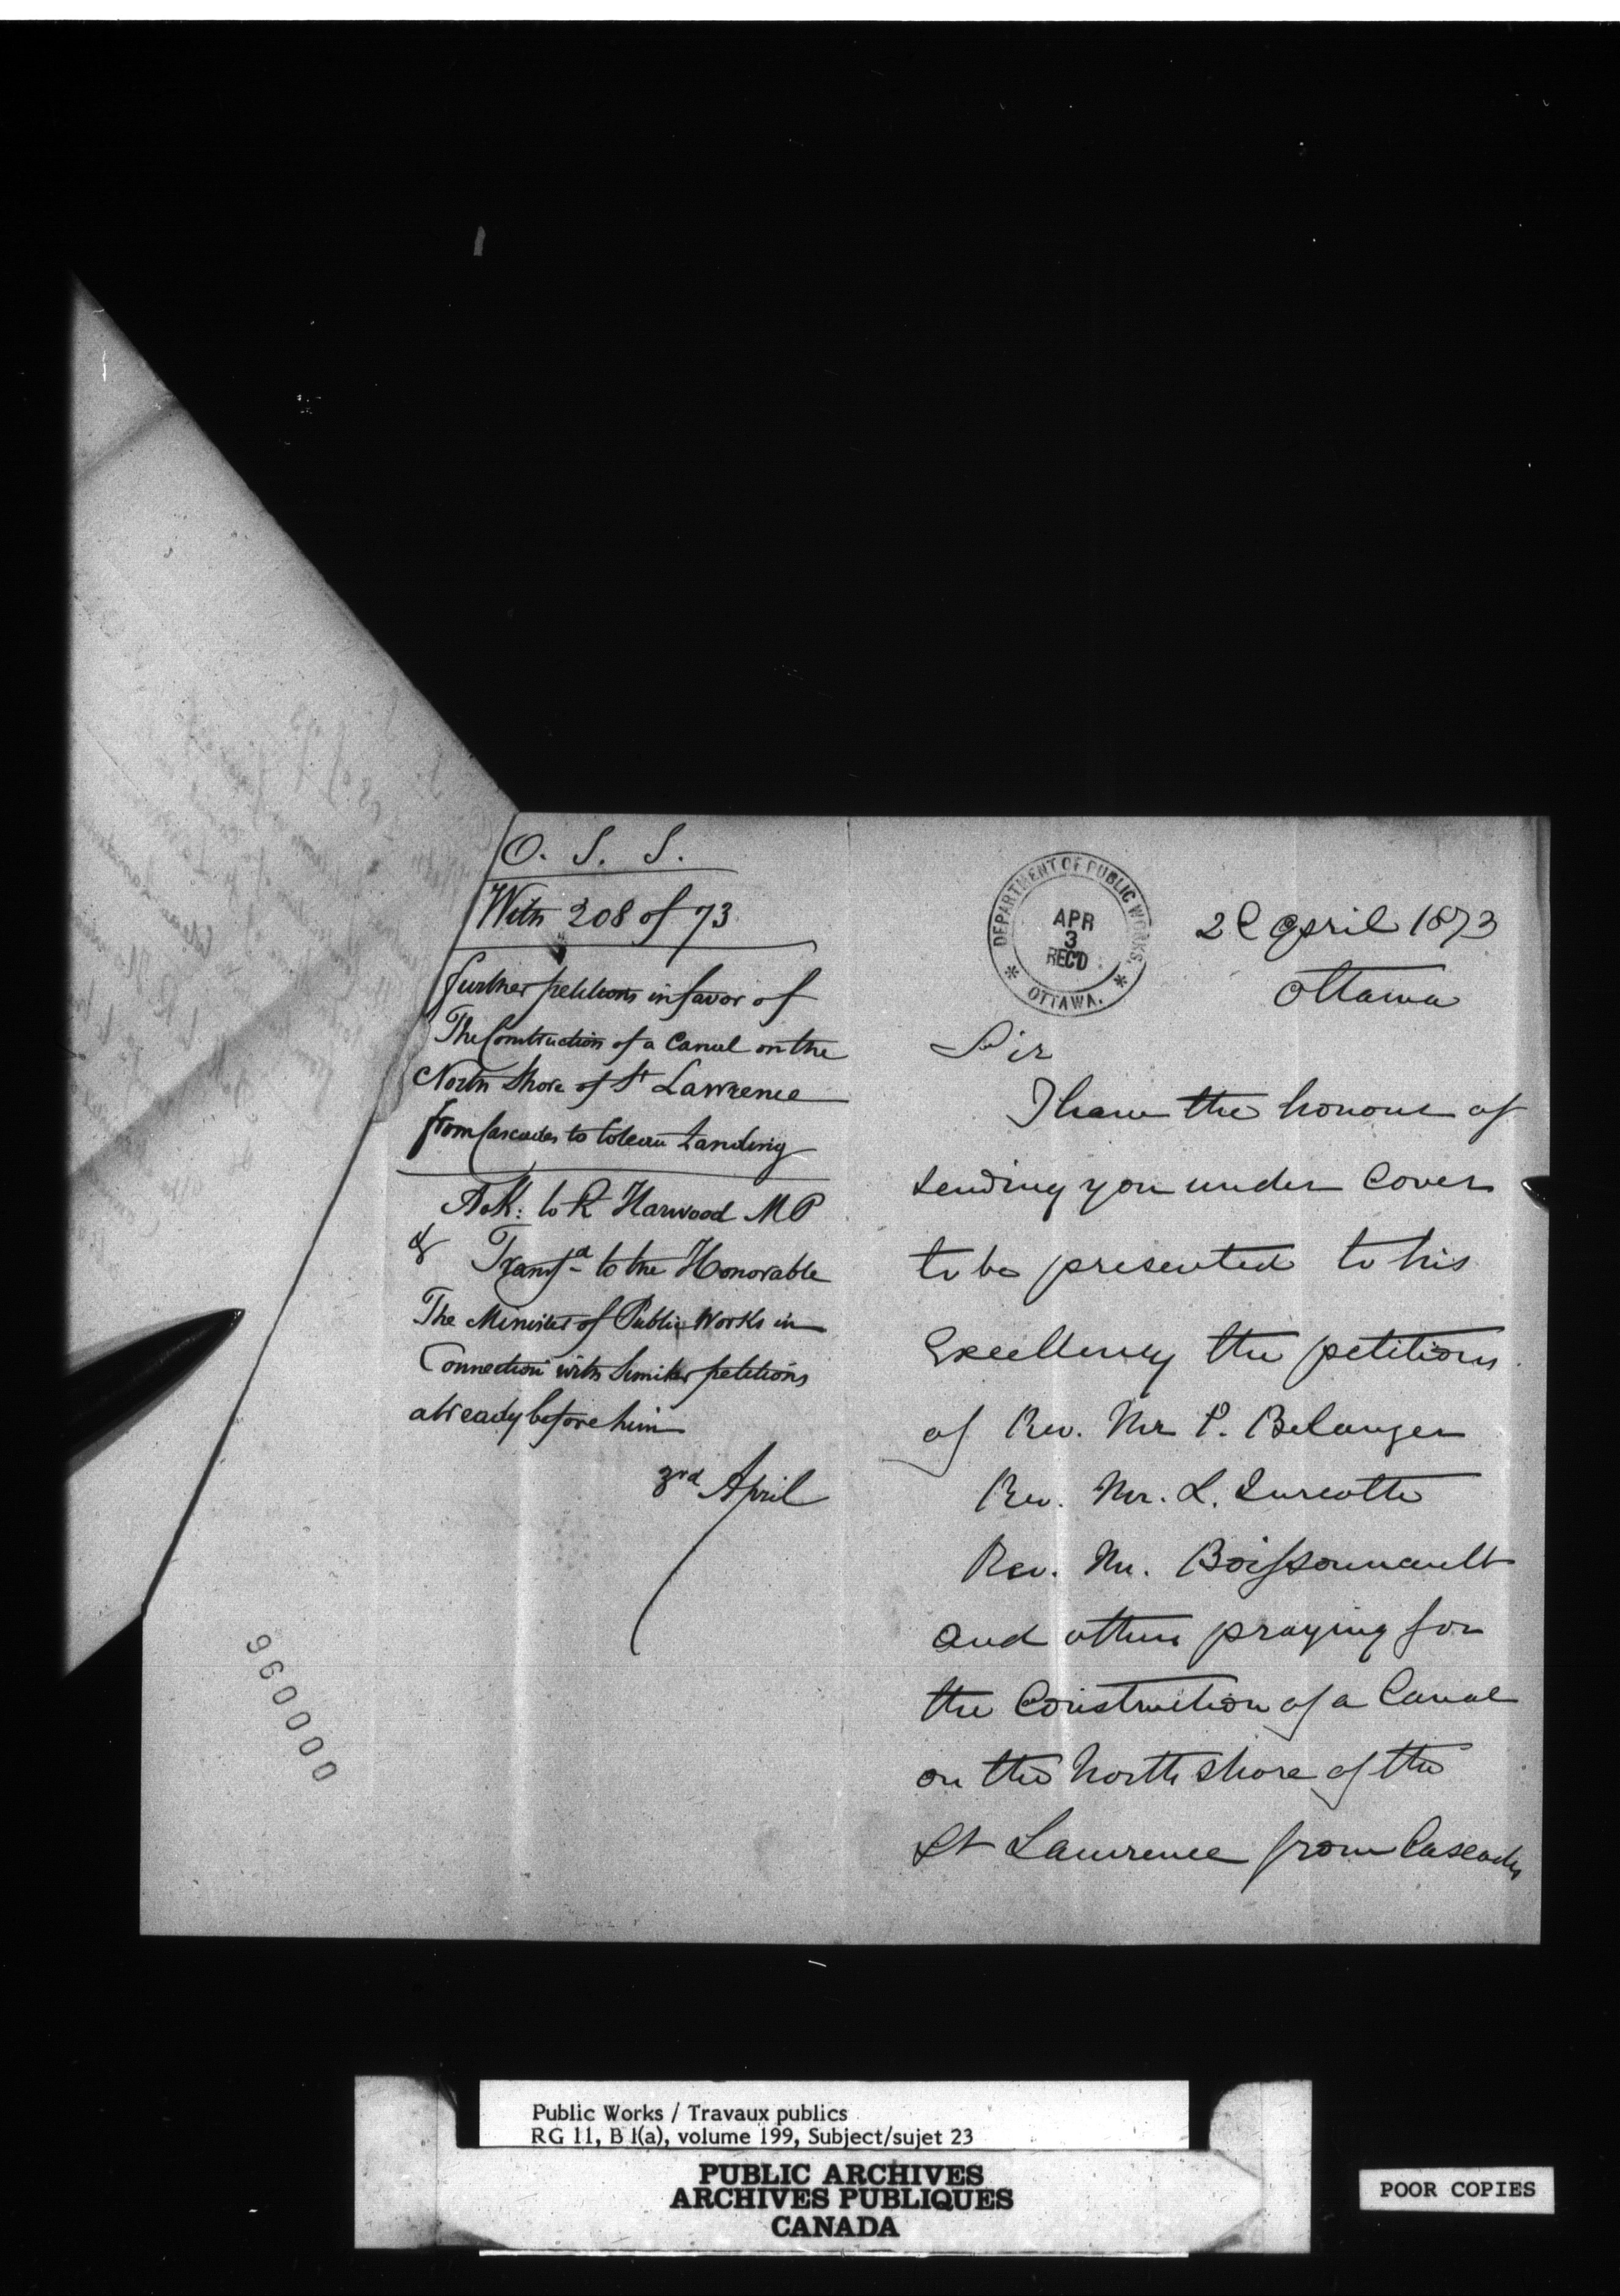 O. S. S.
With 208 of 73
further petitions in favor of
The Construction of a Canal on the
North Shore of St Lawrence
from Cascades to Coteau Landing
Ack: to R Harwood MP
& Transfd to the Honorable
The Minister of Public Works in
Connection with similar petitions
already before him
3rd April
000096
DEPARTMENT OF PUBLIC WORKS.
APR
3
REC'D
* OTTAWA. *
2 April 1873
Ottawa
Sir
I have the honour of
sending you under Cover
to be presented to his
Excellency the petitions
of Rev. Mr P. Belanger
Rev. Mr. L. Turcotte
Rev. Mr. Boissonnault
and others praying for
the Construction of a Canal
on the North Shore of the
St Lawrence from Cascades
Public Works / Travaux publics
RG 11, B 1(a), volume 199, Subject/sujet 23
PUBLIC ARCHIVES
ARCHIVES PUBLIQUES
CANADA
POOR COPIES